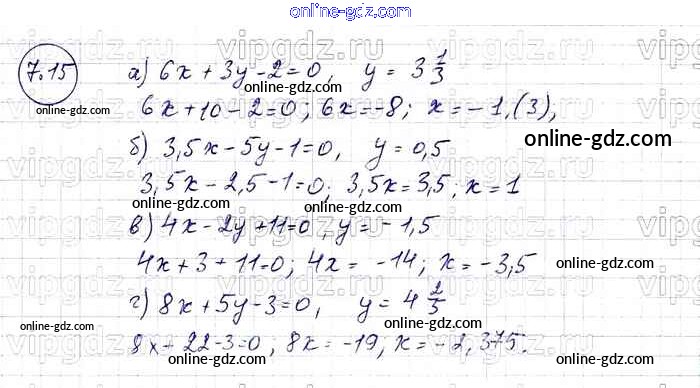 online-gdz.com
7.15
а) 6x + 3y - 2 = 0, y = 3 1/3
6x + 10 - 2 = 0; 6x = -8; x = -1,(3),
online-gdz.com
online-gdz.com
б) 3,5x - 5y - 1 = 0, y = 0,5
3,5x - 2,5 - 1 = 0; 3,5x = 3,5; x = 1
online-gdz.com
online-gdz.com
в) 4x - 2y + 11 = 0, y = -1,5
4x + 3 + 11 = 0; 4x = -14; x = -3,5
online-gdz.com
online-gdz.com
г) 8x + 5y - 3 = 0, y = 4 2/3
online-gdz.com
8x + 22 - 3 = 0; 8x = -19, x = -2,375.
online-gdz.com
online-gdz.com
online-gdz.com